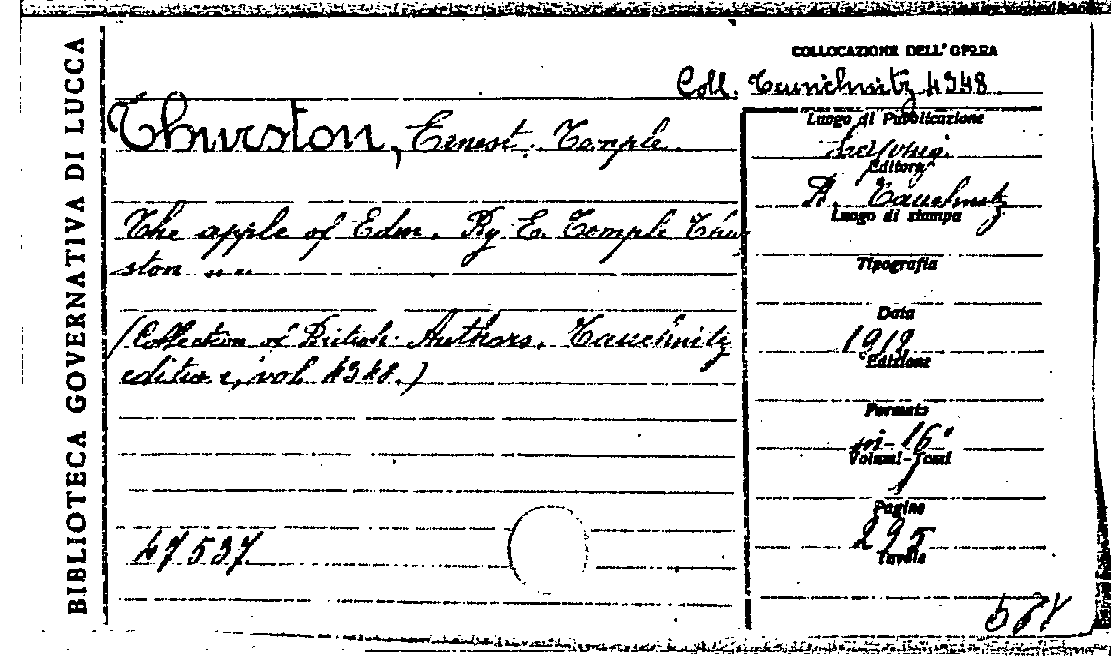 BIBLIOTECA GOVERNATIVA DI LUCCA
COLLOCAZIONE DELL'OPERA
Coll. Tauchnitz 4348
Thurston, Ernest Temple
The apple of Eden. By E. Temple Thur
ston ....
(Collection of British Authors. Tauchnitz
edition, vol. 4348.)
47537
Luogo di Pubblicazione
Leipzig
Editore
B. Tauchnitz
Luogo di stampa
Tipografia
Data
1912
Edizione
Formato
in-16°
Volumi-Tomi
1
Pagine
295
Tavole